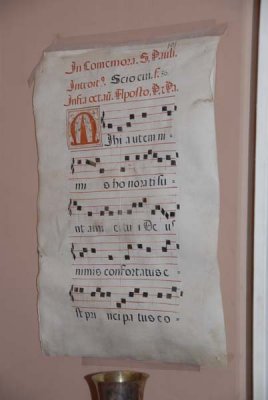 In Comemora. S. Pauli.
Introitꝰ. Scio cui. f. 50.
Infra octau. Aposto. P. & Pa.
Mihi autem ni-
mis honorati su-
nt ami ci tui De us
nimis confortatus e-
st prin ci patus eo-